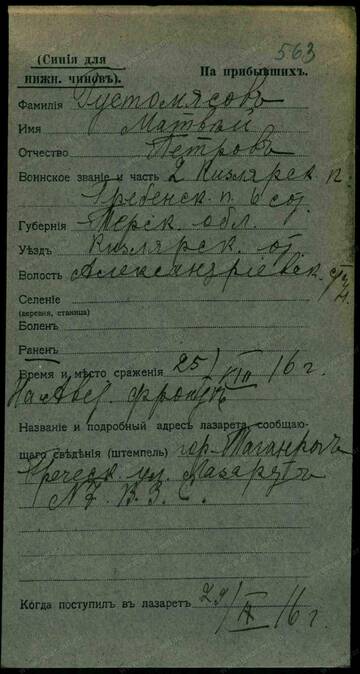 563
(Синія для нижн. чиновъ).
На прибывшихъ.
Фамилія Густомясовъ
Имя Матвѣй
Отчество Петровъ
Воинское званіе и часть 2 Кизлярск п.
Гребенск. п. 6 сот.
Губернія Терск. обл.
Уѣздъ Кизлярск. от.
Волость Александріевск. ст.
Селеніе
(деревня, станица)
Боленъ
Раненъ
Время и мѣсто сраженія 25/VIII 16 г.
фронтѣ
Названіе и подробный адресъ лазарета, сообщаю-
щаго свѣдѣнія (штемпель) гор. Таганрогъ
Греческ. ул. Лазаретъ
№ В. З. С.
Когда поступилъ въ лазаретъ 29/ 16 г.